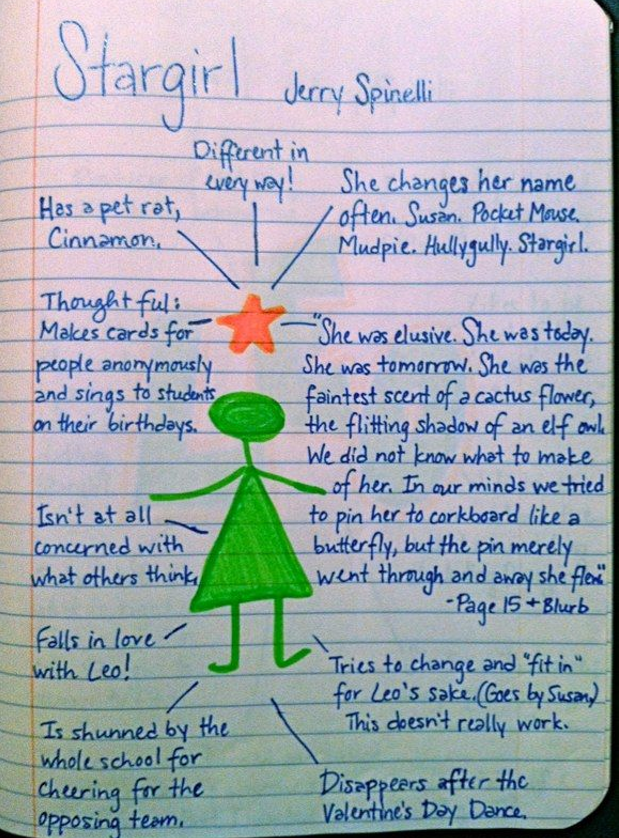 Stargirl Jerry Spinelli
Different in
every way!
Has a pet rat,
Cinnamon.
She changes her name
often. Susan. Pocket Mouse.
Mudpie. Hullygully. Stargirl.
Thoughtful:
Makes cards for
people anonymously
and sings to students
on their birthdays.
"She was elusive. She was today.
She was tomorrow. She was the
faintest scent of a cactus flower,
the flitting shadow of an elf owl.
We did not know what to make
of her. In our minds we tried
to pin her to corkboard like a
butterfly, but the pin merely
went through and away she flew."
-Page 15 + Blurb
Isn't at all
concerned with
what others think.
Falls in love
with Leo!
Tries to change and "fit in"
for Leo's sake. (Goes by Susan)
This doesn't really work.
Is shunned by the
whole school for
cheering for the
opposing team.
Disappears after the
Valentine's Day Dance.